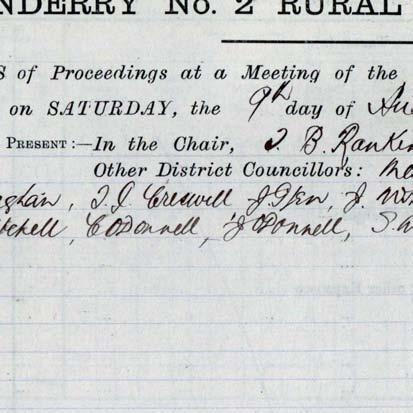 NDERRY No. 2 RURAL
S of Proceedings at a Meeting of the
on SATURDAY, the 9th day of Au
PRESENT:—In the Chair, J. B. Rankin
Other District Councillors:
ghan, T. J. Creswell J. Glen, J.
tchell, C O'Donnell, J O'Donnell, S.